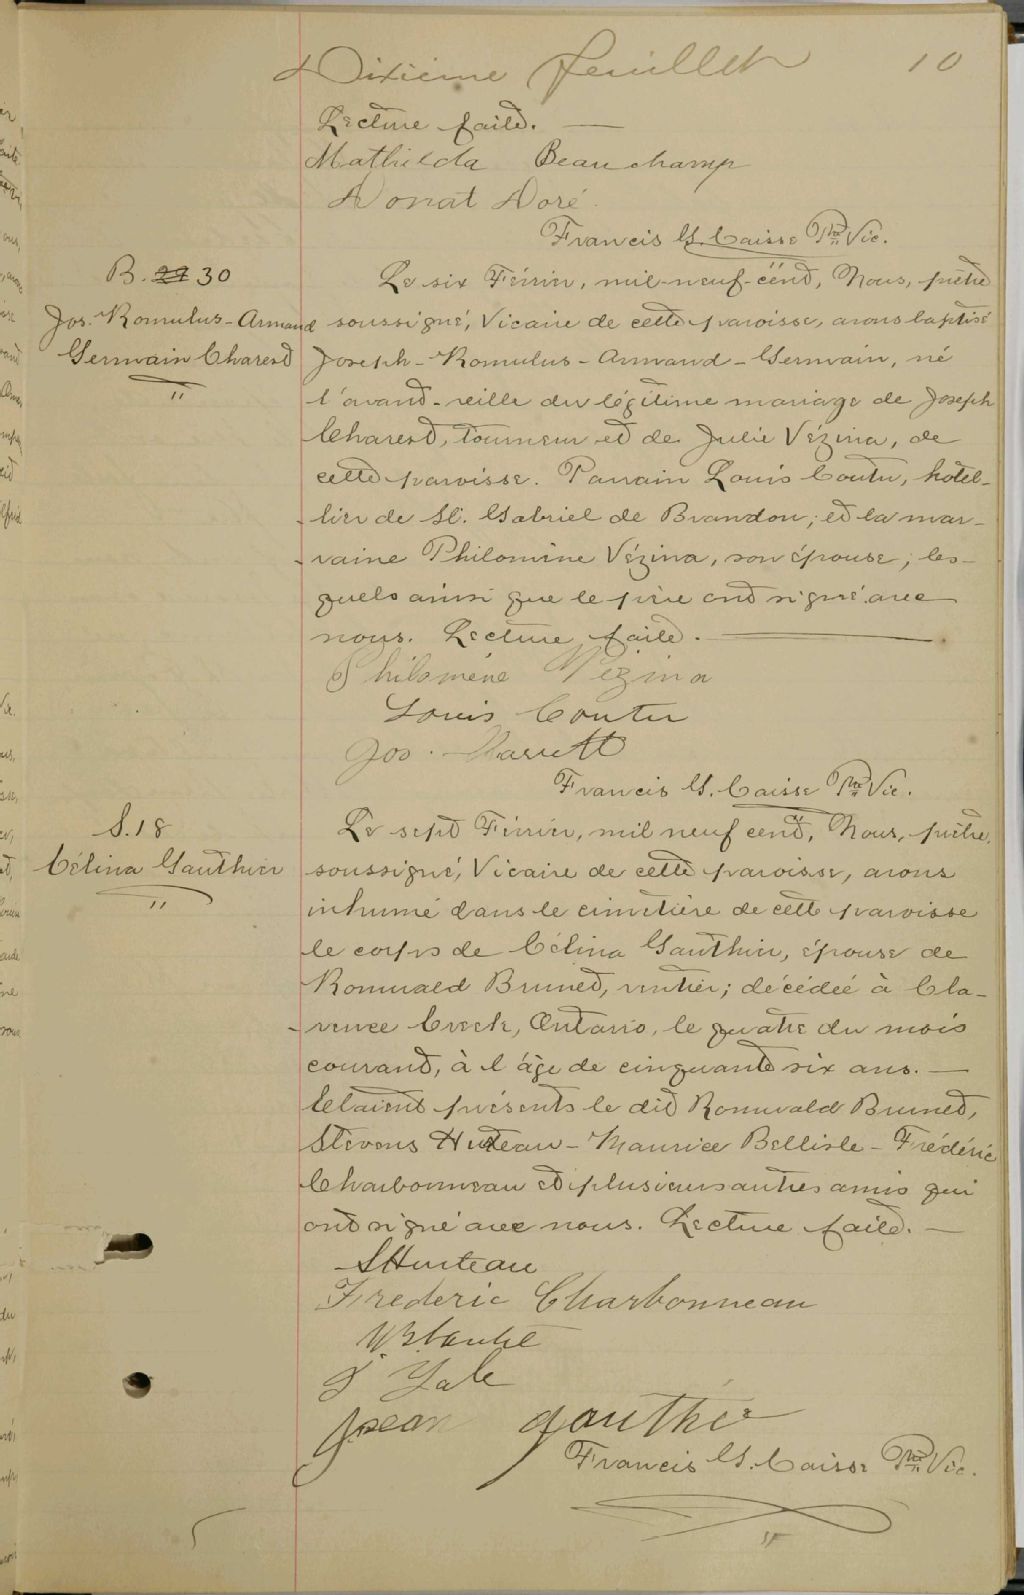 Dixième feuillet 10
Lecture faite. —
Mathilda Beauchamp
Donat Doré
Francis G. Caisse Ptre Vic.
B. 29 30
Jos. Romulus-Armand
Germain Charest
"
Le six Février, mil-neuf-cent, Nous, prêtre
soussigné, Vicaire de cette paroisse, avons baptisé
Joseph-Romulus-Armand-Germain, né
l'avant-veille du légitime mariage de Joseph
Charest, tourneur et de Julie Vézina, de
cette paroisse. Parrain Louis Coutu, hôtel-
lier de St. Gabriel de Brandon; et la mar-
raine Philomène Vézina, son épouse; les-
quels ainsi que le père ont signé avec
nous. Lecture faite. —
Philomène Vézina
Louis Coutu
Jos.
Francis G. Caisse Ptre Vic.
S. 18
Célina Gauthier
"
Le sept Février, mil neuf cent, Nous, prêtre,
soussigné, Vicaire de cette paroisse, avons
inhumé dans le cimetière de cette paroisse
le corps de Célina Gauthier, épouse de
Romuald Brunet, rentier; décédée à Cla-
rence Creek, Ontario, le quatre du mois
courant, à l'âge de cinquante six ans. —
Etaient présents le dit Romuald Brunet,
Stevens Hurteau - Maurice Bellisle - Frédéric
Charbonneau et plusieurs autres amis qui
ont signé avec nous. Lecture faite. —
SHurteau
Frederic Charbonneau
Yale
Jean Gauthier
Francis G. Caisse Ptre Vic.
"